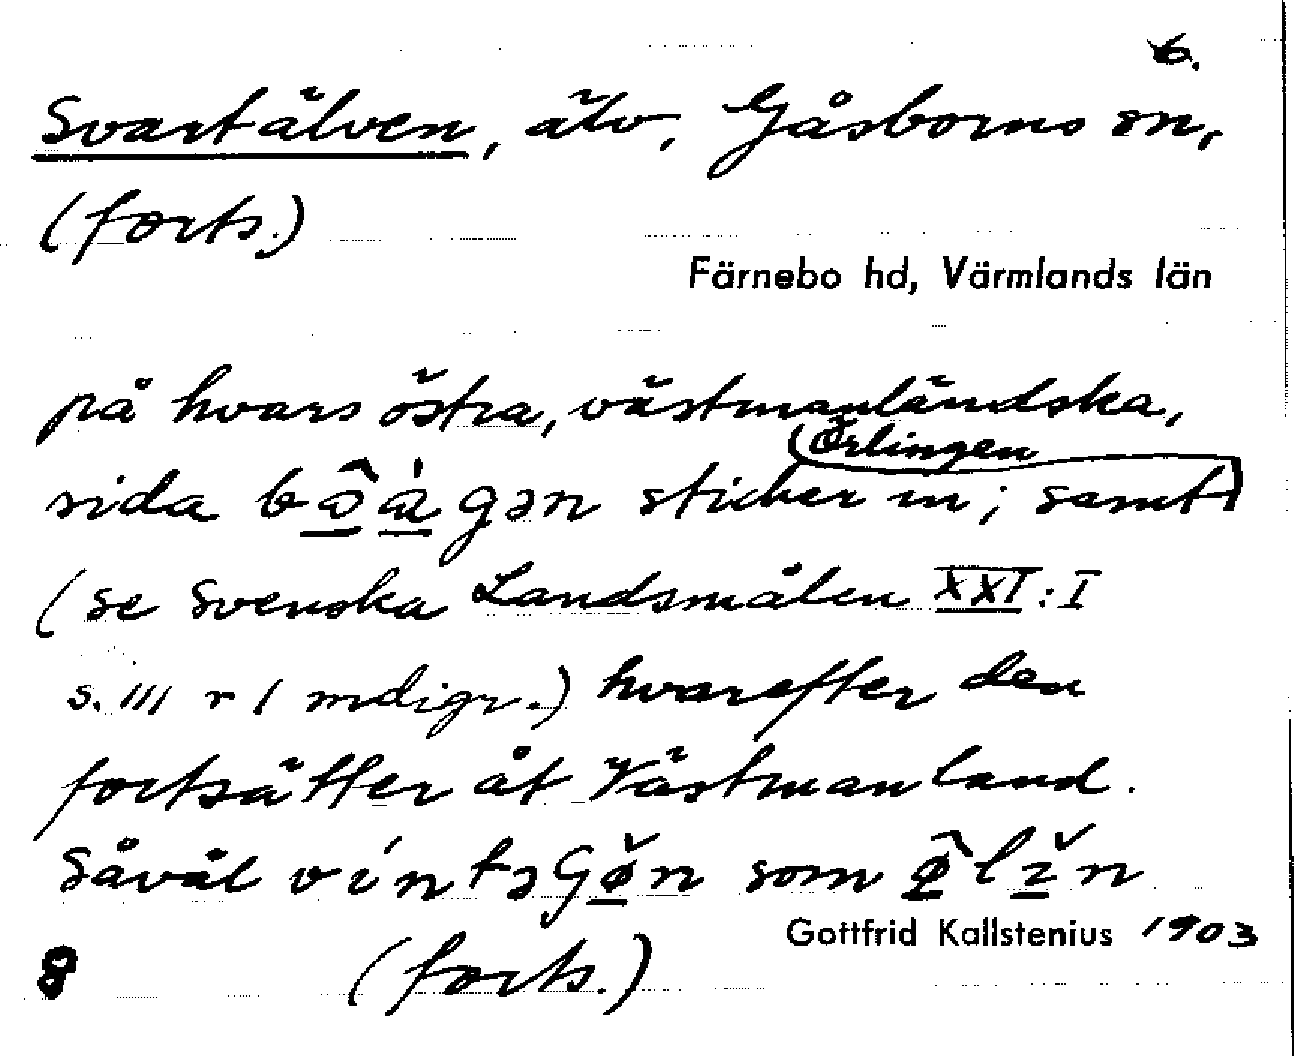 6.
Svartälven, älv, Gåsborns sn,
(forts.)
Färnebo hd, Värmlands län
på hvars östra, västmanländska,
(Örlingen)
sida bôàgən sticker in; samt
(se Svenska Landsmålen XXI:I
s. III r 1 mdigr.) hvarefter den
fortsätter åt Västmanland.
Såväl víntəGø̌n som ø̂lɪ̌n
Gottfrid Kallstenius 1903
8 (forts.)